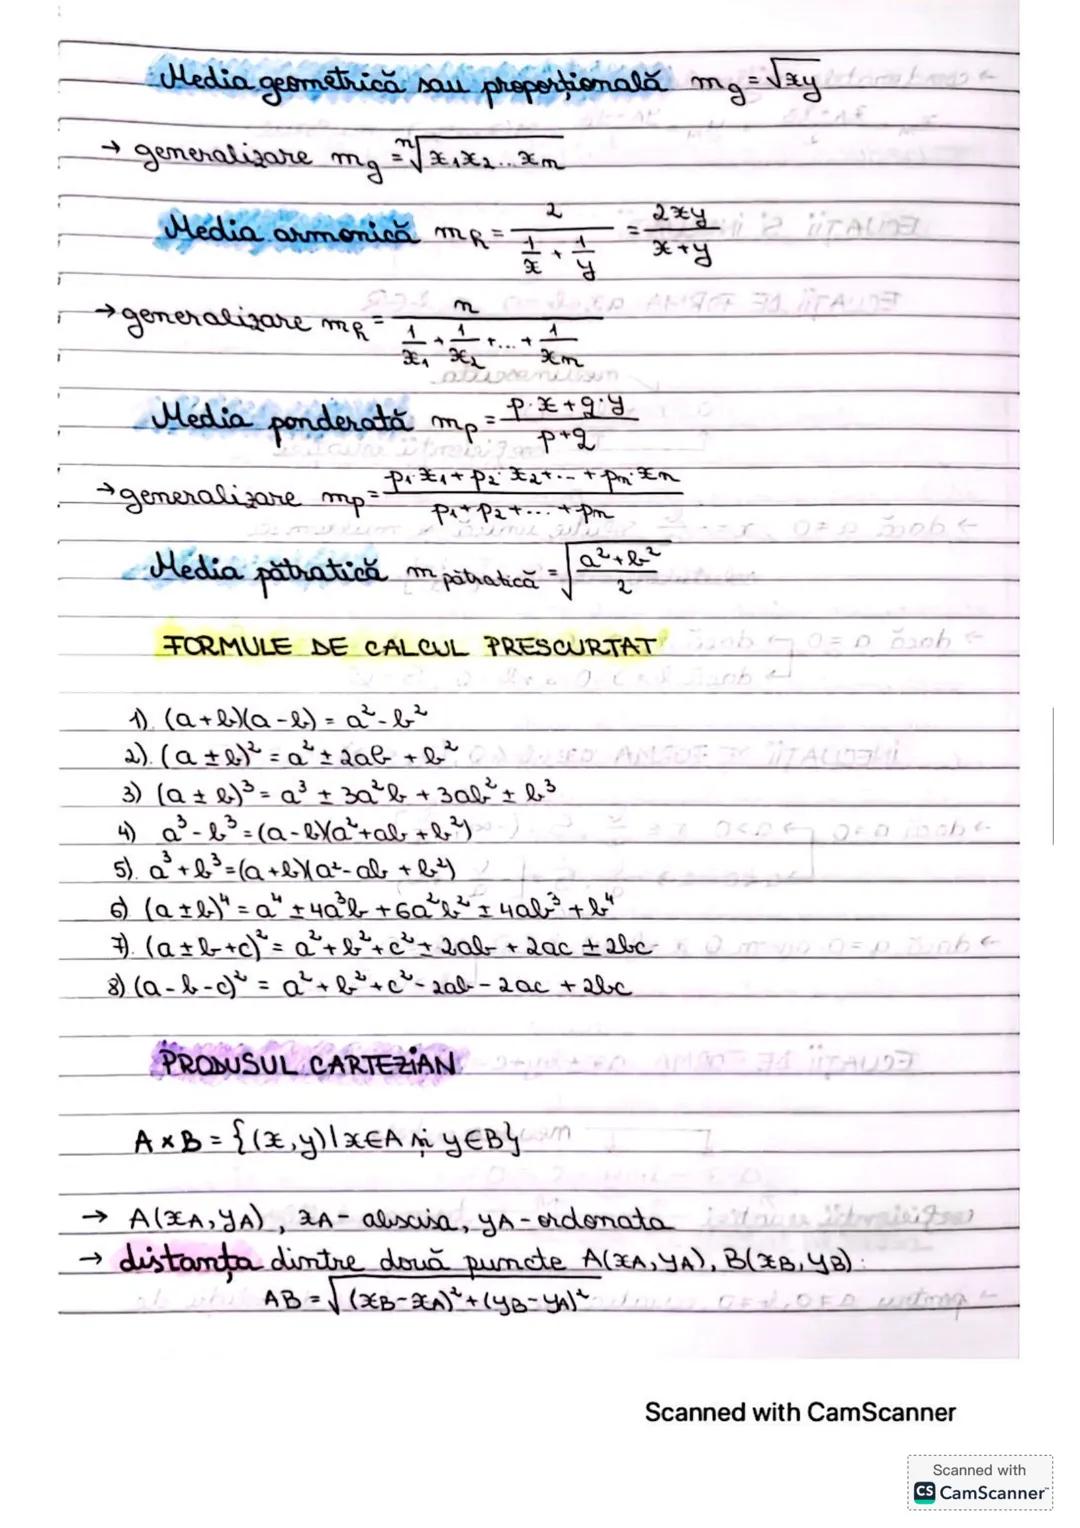 Media geometrică sau proporțională m_g = √xy
→ generalizare m_g = ⁿ√x₁x₂...xₙ
Media armonică m_R = 2/(1/x + 1/y) = 2xy/(x+y)
→ generalizare m_R = n/(1/x₁ + 1/x₂ + ... + 1/xₙ)
Media ponderată m_p = (p·x+q·y)/(p+q)
→ generalizare m_p = (p₁·x₁+p₂·x₂+...+pₙ·xₙ)/(p₁+p₂+...+pₙ)
Media pătratică m pătratică = √((a²+b²)/2)
FORMULE DE CALCUL PRESCURTAT
1). (a+b)(a-b) = a²-b²
2). (a±b)² = a² ± 2ab + b²
3) (a±b)³ = a³ ± 3a²b + 3ab² ± b³
4) a³-b³=(a-b)(a²+ab+b²)
5). a³+b³=(a+b)(a²-ab+b²)
6) (a±b)⁴ = a⁴ ± 4a³b + 6a²b² ± 4ab³ + b⁴
7). (a±b+c)² = a²+b²+c² ± 2ab + 2ac ± 2bc
8) (a-b-c)² = a²+b²+c²-2ab-2ac+2bc
PRODUSUL CARTEZIAN
A×B = {(x,y)|x∈A și y∈B}
→ A(x_A, y_A), x_A - abscisa, y_A - ordonata
→ distanța dintre două puncte A(x_A, y_A), B(x_B, y_B):
AB = √((x_B-x_A)²+(y_B-y_A)²)
Scanned with CamScanner
Scanned with
CS CamScanner